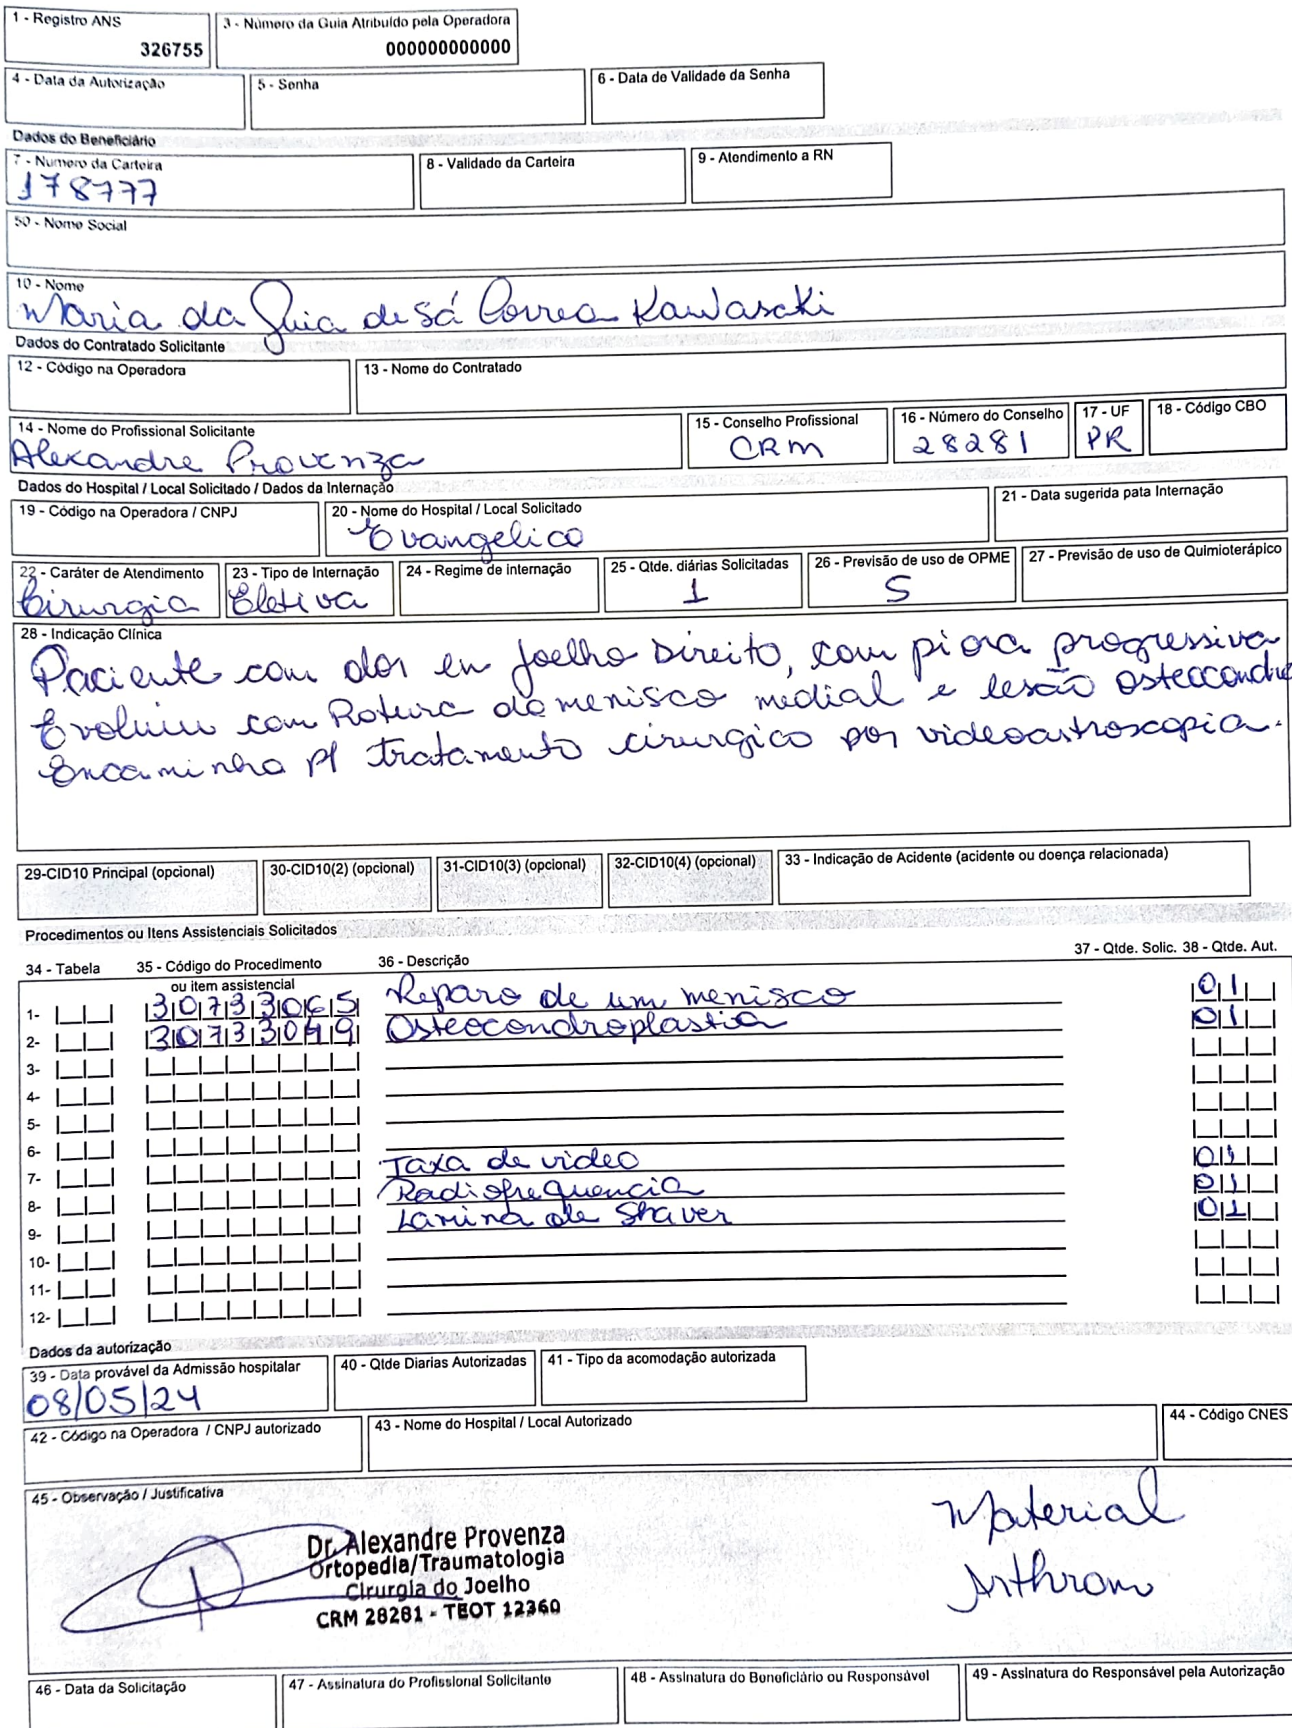 1 - Registro ANS
326755
3 - Número da Guia Atribuído pela Operadora
000000000000
4 - Data da Autorização
5 - Senha
6 - Data de Validade da Senha
Dados do Beneficiário
7 - Numero da Carteira
178777
8 - Validado da Carteira
9 - Atendimento a RN
50 - Nome Social
10 - Nome
Maria da Guia de Sá Correa Kawasaki
Dados do Contratado Solicitante
12 - Código na Operadora
13 - Nome do Contratado
14 - Nome do Profissional Solicitante
Alexandre Provenza
15 - Conselho Profissional
CRM
16 - Número do Conselho
28281
17 - UF
PR
18 - Código CBO
Dados do Hospital / Local Solicitado / Dados da Internação
19 - Código na Operadora / CNPJ
20 - Nome do Hospital / Local Solicitado
Evangelico
21 - Data sugerida pata Internação
22 - Caráter de Atendimento
Cirurgia
23 - Tipo de Internação
Eletiva
24 - Regime de internação
25 - Qtde. diárias Solicitadas
1
26 - Previsão de uso de OPME
S
27 - Previsão de uso de Quimioterápico
28 - Indicação Clínica
Paciente com dor em Joelho Direito, com piora progressiva
Evoluiu com Rotura do menisco medial e lesão osteocondra
Encaminho p/ tratamento cirurgico por videoartroscopia.
29-CID10 Principal (opcional)
30-CID10(2) (opcional)
31-CID10(3) (opcional)
32-CID10(4) (opcional)
33 - Indicação de Acidente (acidente ou doença relacionada)
Procedimentos ou Itens Assistenciais Solicitados
34 - Tabela
35 - Código do Procedimento
ou item assistencial
36 - Descrição
37 - Qtde. Solic. 38 - Qtde. Aut.
1- 30733065 Reparo de um menisco 01
2- 30733049 Osteocondroplastia 01
3-
4-
5-
6-
7- Taxa de video 01
8- Radiofrequencia 01
9- Lamina de Shaver 01
10-
11-
12-
Dados da autorização
39 - Data provável da Admissão hospitalar
08/05/24
40 - Qtde Diarias Autorizadas
41 - Tipo da acomodação autorizada
42 - Código na Operadora / CNPJ autorizado
43 - Nome do Hospital / Local Autorizado
44 - Código CNES
45 - Observação / Justificativa
Dr. Alexandre Provenza
Ortopedia/Traumatologia
Cirurgia do Joelho
CRM 28281 - TEOT 12360
Material
Arthrom
46 - Data da Solicitação
47 - Assinatura do Profissional Solicitante
48 - Assinatura do Beneficiário ou Responsável
49 - Assinatura do Responsável pela Autorização